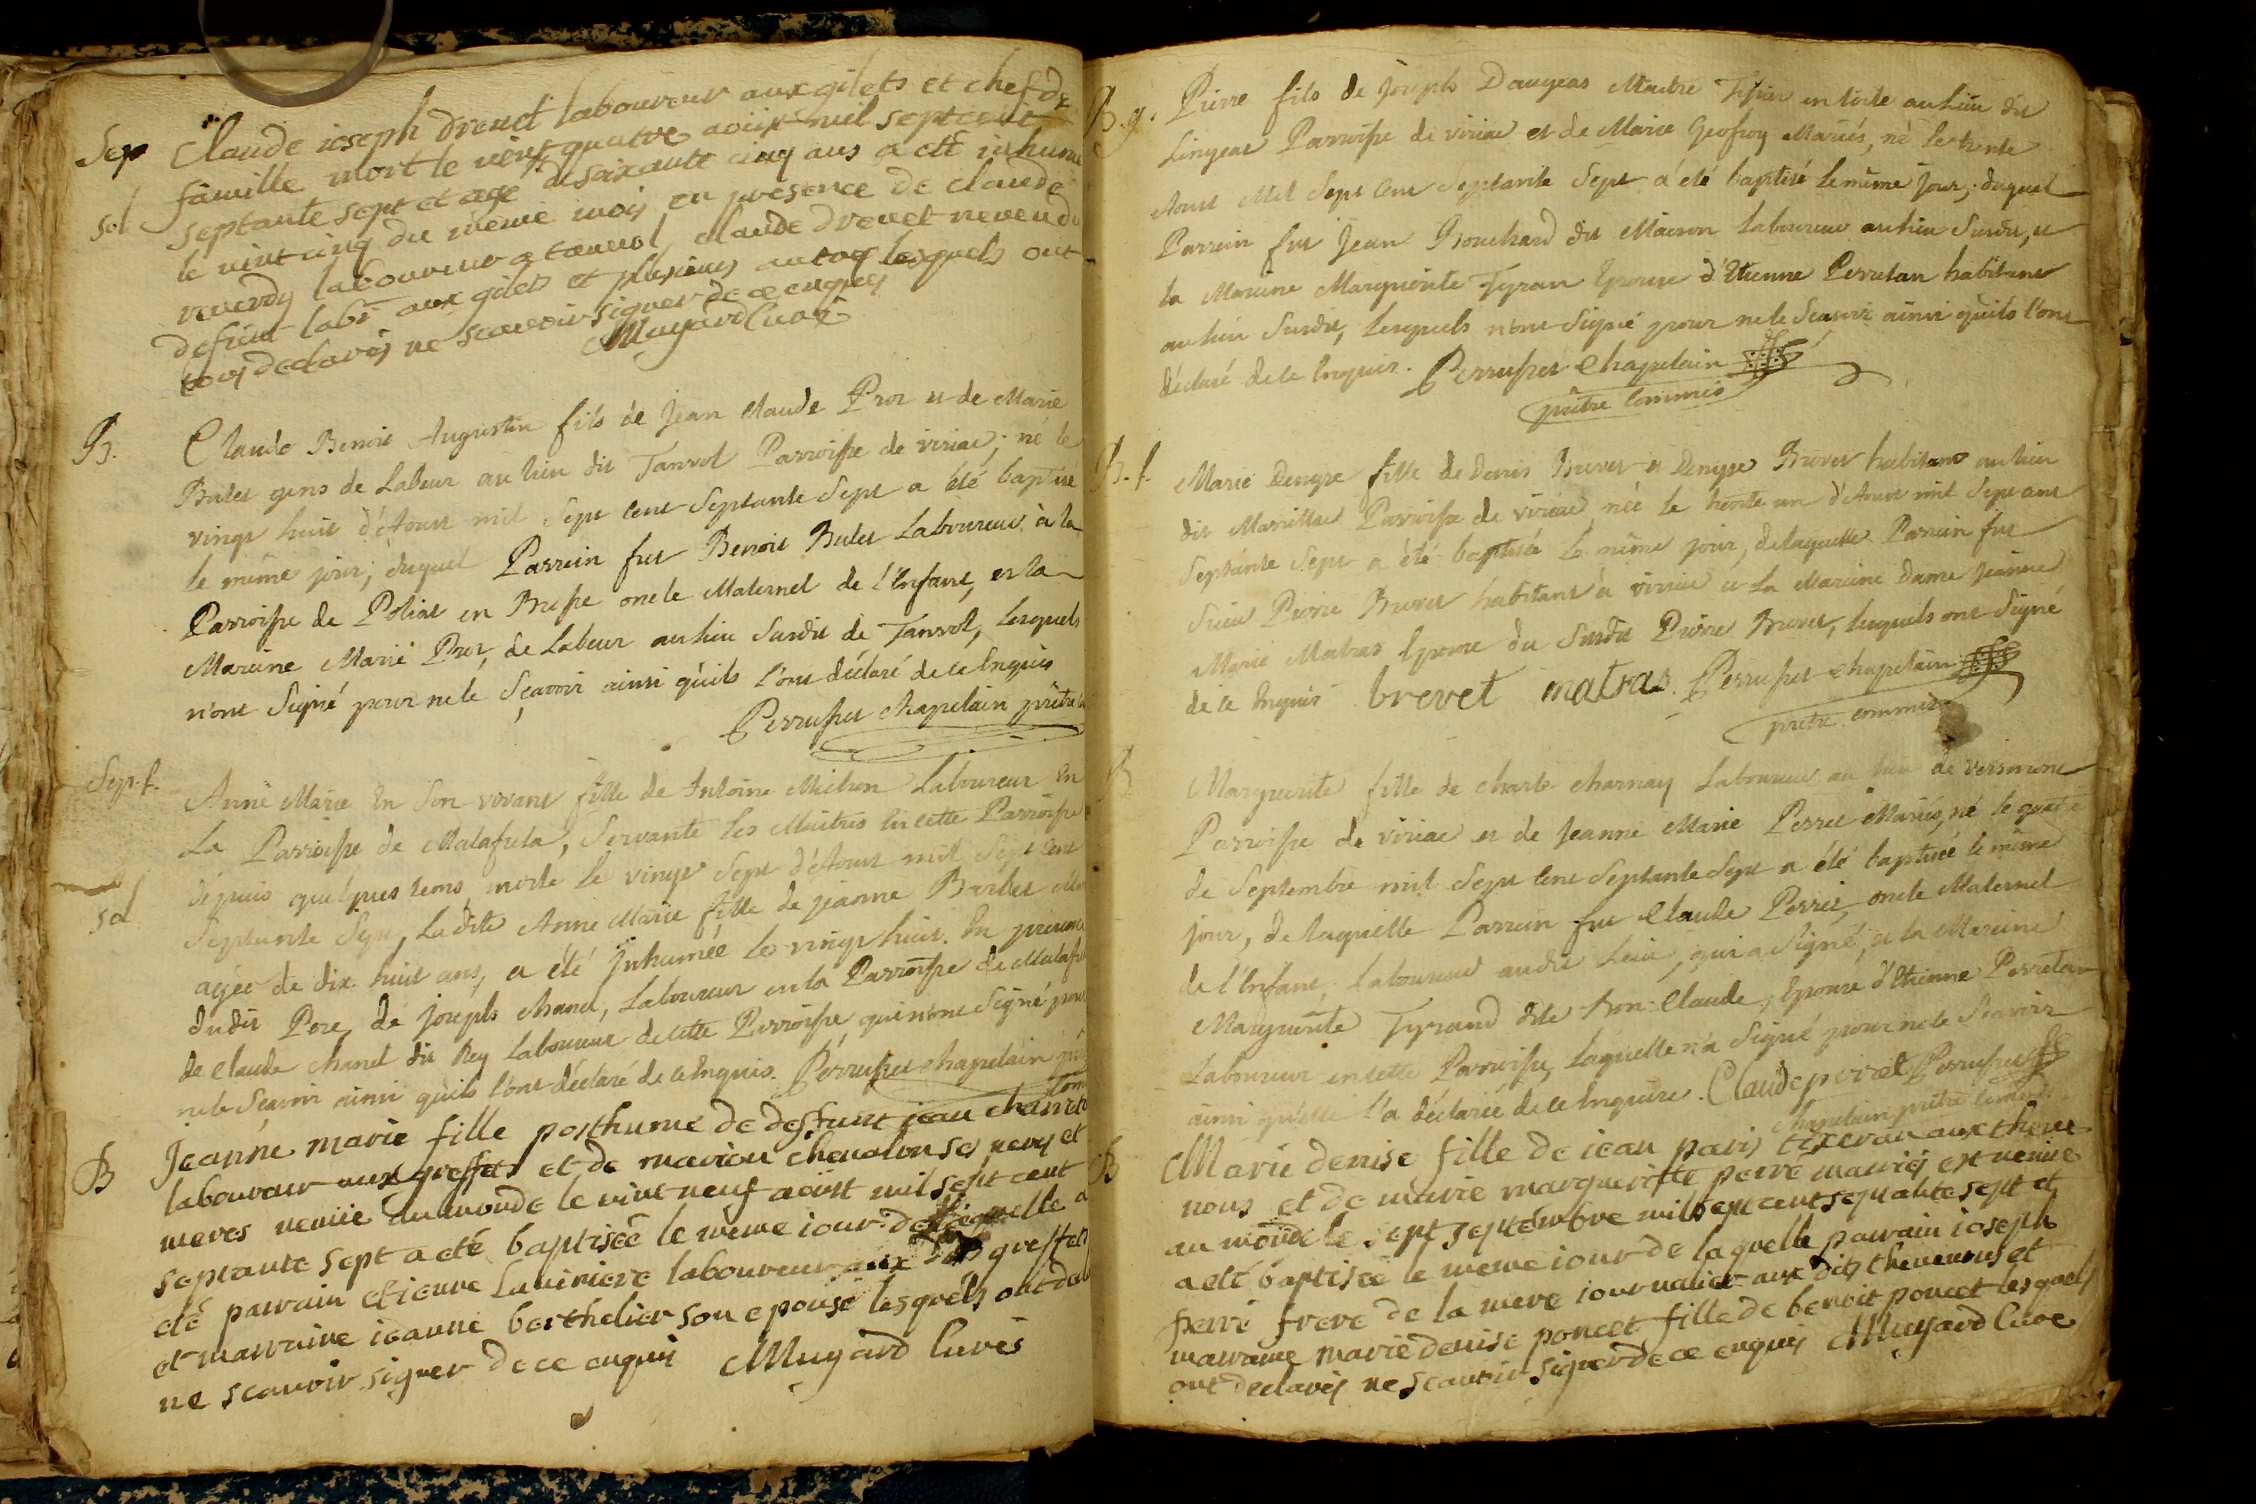 Sep Claude ioseph drevet laboureur aux gilets et chef de
famille mort le vint quatre aoust mil sept cent
sol septante sept et agé de soixante cinq ans a eté inhumé
le vint cinq du meme mois en presence de claude
reverdy laboureur a tanvol, claude drevet neveu du
defunt labr aux gilets et plusieurs autres lesquels ont
tous declarés ne scavoir signer de ce enquis
Muyard Curé
B. Claude Benoit Augustin fils de Jean Claude Pror et de Marie
Bulet gens de Labeur au lieu dit Tanvol Parroisse de viriac; né le
vingt huit d'Aoust mil sept cent Septante Sept a été baptisé
le même jour; duquel Parrein fut Benoit Bulet Laboureur à la
Parroisse de Poliat en Bresse oncle Maternel de l'Enfant, et la
Mareine Marie Pror, de Labeur au lieu Susdit de Tanvol, lesquels
n'ont Signé pour ne le Sçavoir ainsi qu'ils l'ont déclaré de ce Enquis
Perrusset chapelain prêtre
Sep. f. Anne Marie En Son vivant fille de Antoine Michon Laboureur En
La Parroisse de Malafreta, Servante les Maitres En cette Parroisse
depuis quelques tems, morte le vingt Sept d'Aoust mil Sept cent
sol Septante Sept, Ladite Anne Marie fille de jeanne Barbet
agée de dix huit ans, a été Inhumée le vingt huit. En presence
dudit Pere, de joseph chanel, Laboureur en la Parroisse de Malafre
de Claude chanel dit Rey Laboureur de cette Parroisse qui n'ont Signé pour
ne le Sçavoir ainsi qu'ils l'ont déclaré de ce Enquis. Perrusset chapelain
B Jeanne marie fille posthume de defunt jean
laboureur aux greffets et de marion chevalon ses peres et
meres venüe au monde le vint neuf aoüst mil sept cent
septante sept a eté baptisée le meme iour de laquelle a
eté parrain etienne laviniere laboureur aux dits greffets
et marraine ieanne berthelier son epouse lesquels ont
ne scavoir signer de ce enquis Muyard Curés
B. g. Pierre fils de joseph Daugeas Maitre Tissier en toile au lieu dit
Lingeat Parroisse de viriac et de Marie Geofroy Mariés, né le trente
Aoust Mil Sept Cent Septante Sept a été baptisé le même jour; duquel
Parrein fut Jean Bouchard dit Maison Laboureur au lieu Susdit, et
la Mareine Marguerite Tyran Epouse d'Etienne Perretan habitant
au lieu Susdit, Lesquels n'ont Signé pour ne le Sçavoir ainsi qu'ils l'ont
déclaré de ce Enquis. Perrusset Chapelain
prêtre Commis
B. f. Marie Denyse fille de Denis Brevet et Denyse Brevet habitans au lieu
dit Marillat Parroisse de viriac née le trente un d'Aoust mil Sept cent
Septante Sept a été baptisée le même jour, de laquelle Parrein fut
Sieur Pierre Brevet habitant à viriac et La Mareine dame jeanne
Marie Matras Epouse du Susdit Pierre Brevet, lesquels ont Signé
de ce Enquis brevet matras. Perrusset chapelain
prêtre commis
B Marguerite fille de charle charnay Laboureur au lieu de vermont
Parroisse de viriac et de Jeanne Marie Perret Mariés, né le quatre
de Septembre mil Sept Cent Septante Sept a été baptisée le même
jour, de laquelle Parrein fut Claude Perret, oncle Maternel
de l'Enfant, laboureur au dit Lieu, qui a Signé; et la Mareine
Marguerite Tyrand dite Bon-Claude, Epouse d'Etienne Perretan
Laboureur en cette Parroisse, laquelle n'a Signé pour ne le Scavoir
ainsi qu'elle l'a déclarée de ce Enquise. Claude peret Perrusset
chapelain prêtre commis
B Marie denise fille de iean paris tixeran aux theve
nons et de marie margueritte perré mariés est venüe
au monde le sept septembre mil sept cent septante sept et
a eté baptisée le meme iour de laquelle parrain ioseph
perré frere de la mere iournalier aux dits thevenons et
marraine marie denise poncet fille de benoit poncet lesquels
ont declarés ne scavoir signer de ce enquis Muyard Curé